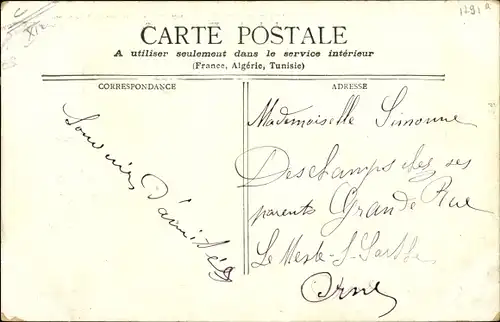 1291 a
CARTE POSTALE
A utiliser seulement dans le service intérieur
(France, Algérie, Tunisie)
CORRESPONDANCE
Souvenirs d'amitiés
ADRESSE
Mademoiselle Simonne
Deschamps chez ses
parents Grande Rue
Le Mesle-S-Sarthe
Orne